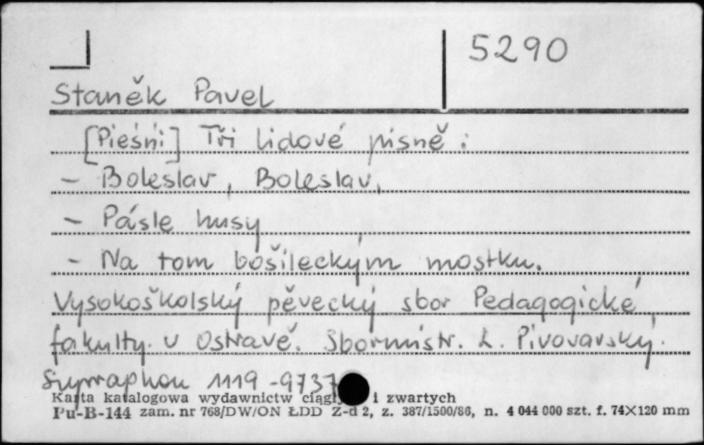 5290
Staněk Pavel
[Pieśni] Tři lidové písně:
- Boleslav, Boleslav,
- Pásle husy
- Na tom bošileckým mostku.
Vysokoškolský pěvecký sbor Pedagogické
fakulty v Ostravě. Sbormistr. L. Pivovarský.
Supraphon 1119-9737
Karta katalogowa wydawnictw ciągł i zwartych
Pu-B-144 zam. nr 768/DW/ON ŁDD Z-d 2, z. 387/1500/86, n. 4 044 000 szt. f. 74×120 mm